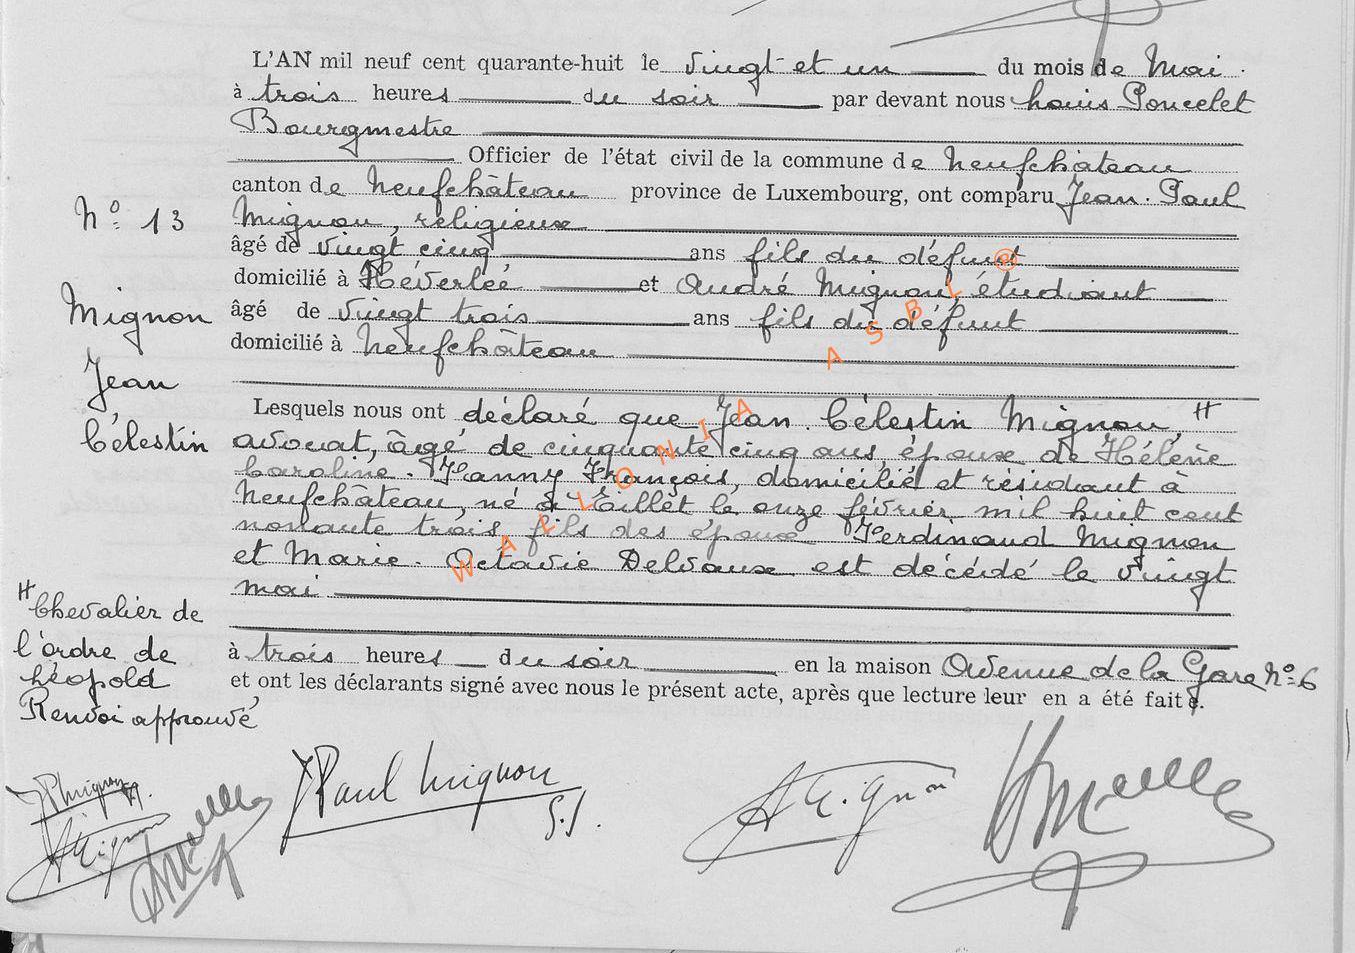 L'AN mil neuf cent quarante-huit le vingt et un du mois de Mai
à trois heures du soir par devant nous Louis Poncelet
Bourgmestre
Officier de l'état civil de la commune de Neufchâteau
canton de Neufchâteau province de Luxembourg, ont comparu Jean-Paul
Mignon, religieux
âgé de vingt cinq ans fils du défunt
domicilié à Héverlée et André Mignon, étudiant
âgé de vingt trois ans fils du défunt
domicilié à Neufchâteau
Lesquels nous ont déclaré que Jean Célestin Mignon, H
avocat, âgé de cinquante cinq ans, époux de Hélène
Caroline Fanny François, domicilié et résidant à
Neufchâteau, né à Tillet le onze février mil huit cent
nonante trois fils des époux Ferdinand Mignon
et Marie-Octavie Delvaux est décédé le vingt
mai
à trois heures du soir en la maison Avenue de la Gare N° 6
et ont les déclarants signé avec nous le présent acte, après que lecture leur en a été faite.
N° 13
Mignon
Jean
Célestin
H Chevalier de
l'ordre de
Léopold
Renvoi approuvé
JPMignon
AMignon
JPaul Mignon
S.J.
AMignon
WALLONIA ASBL @